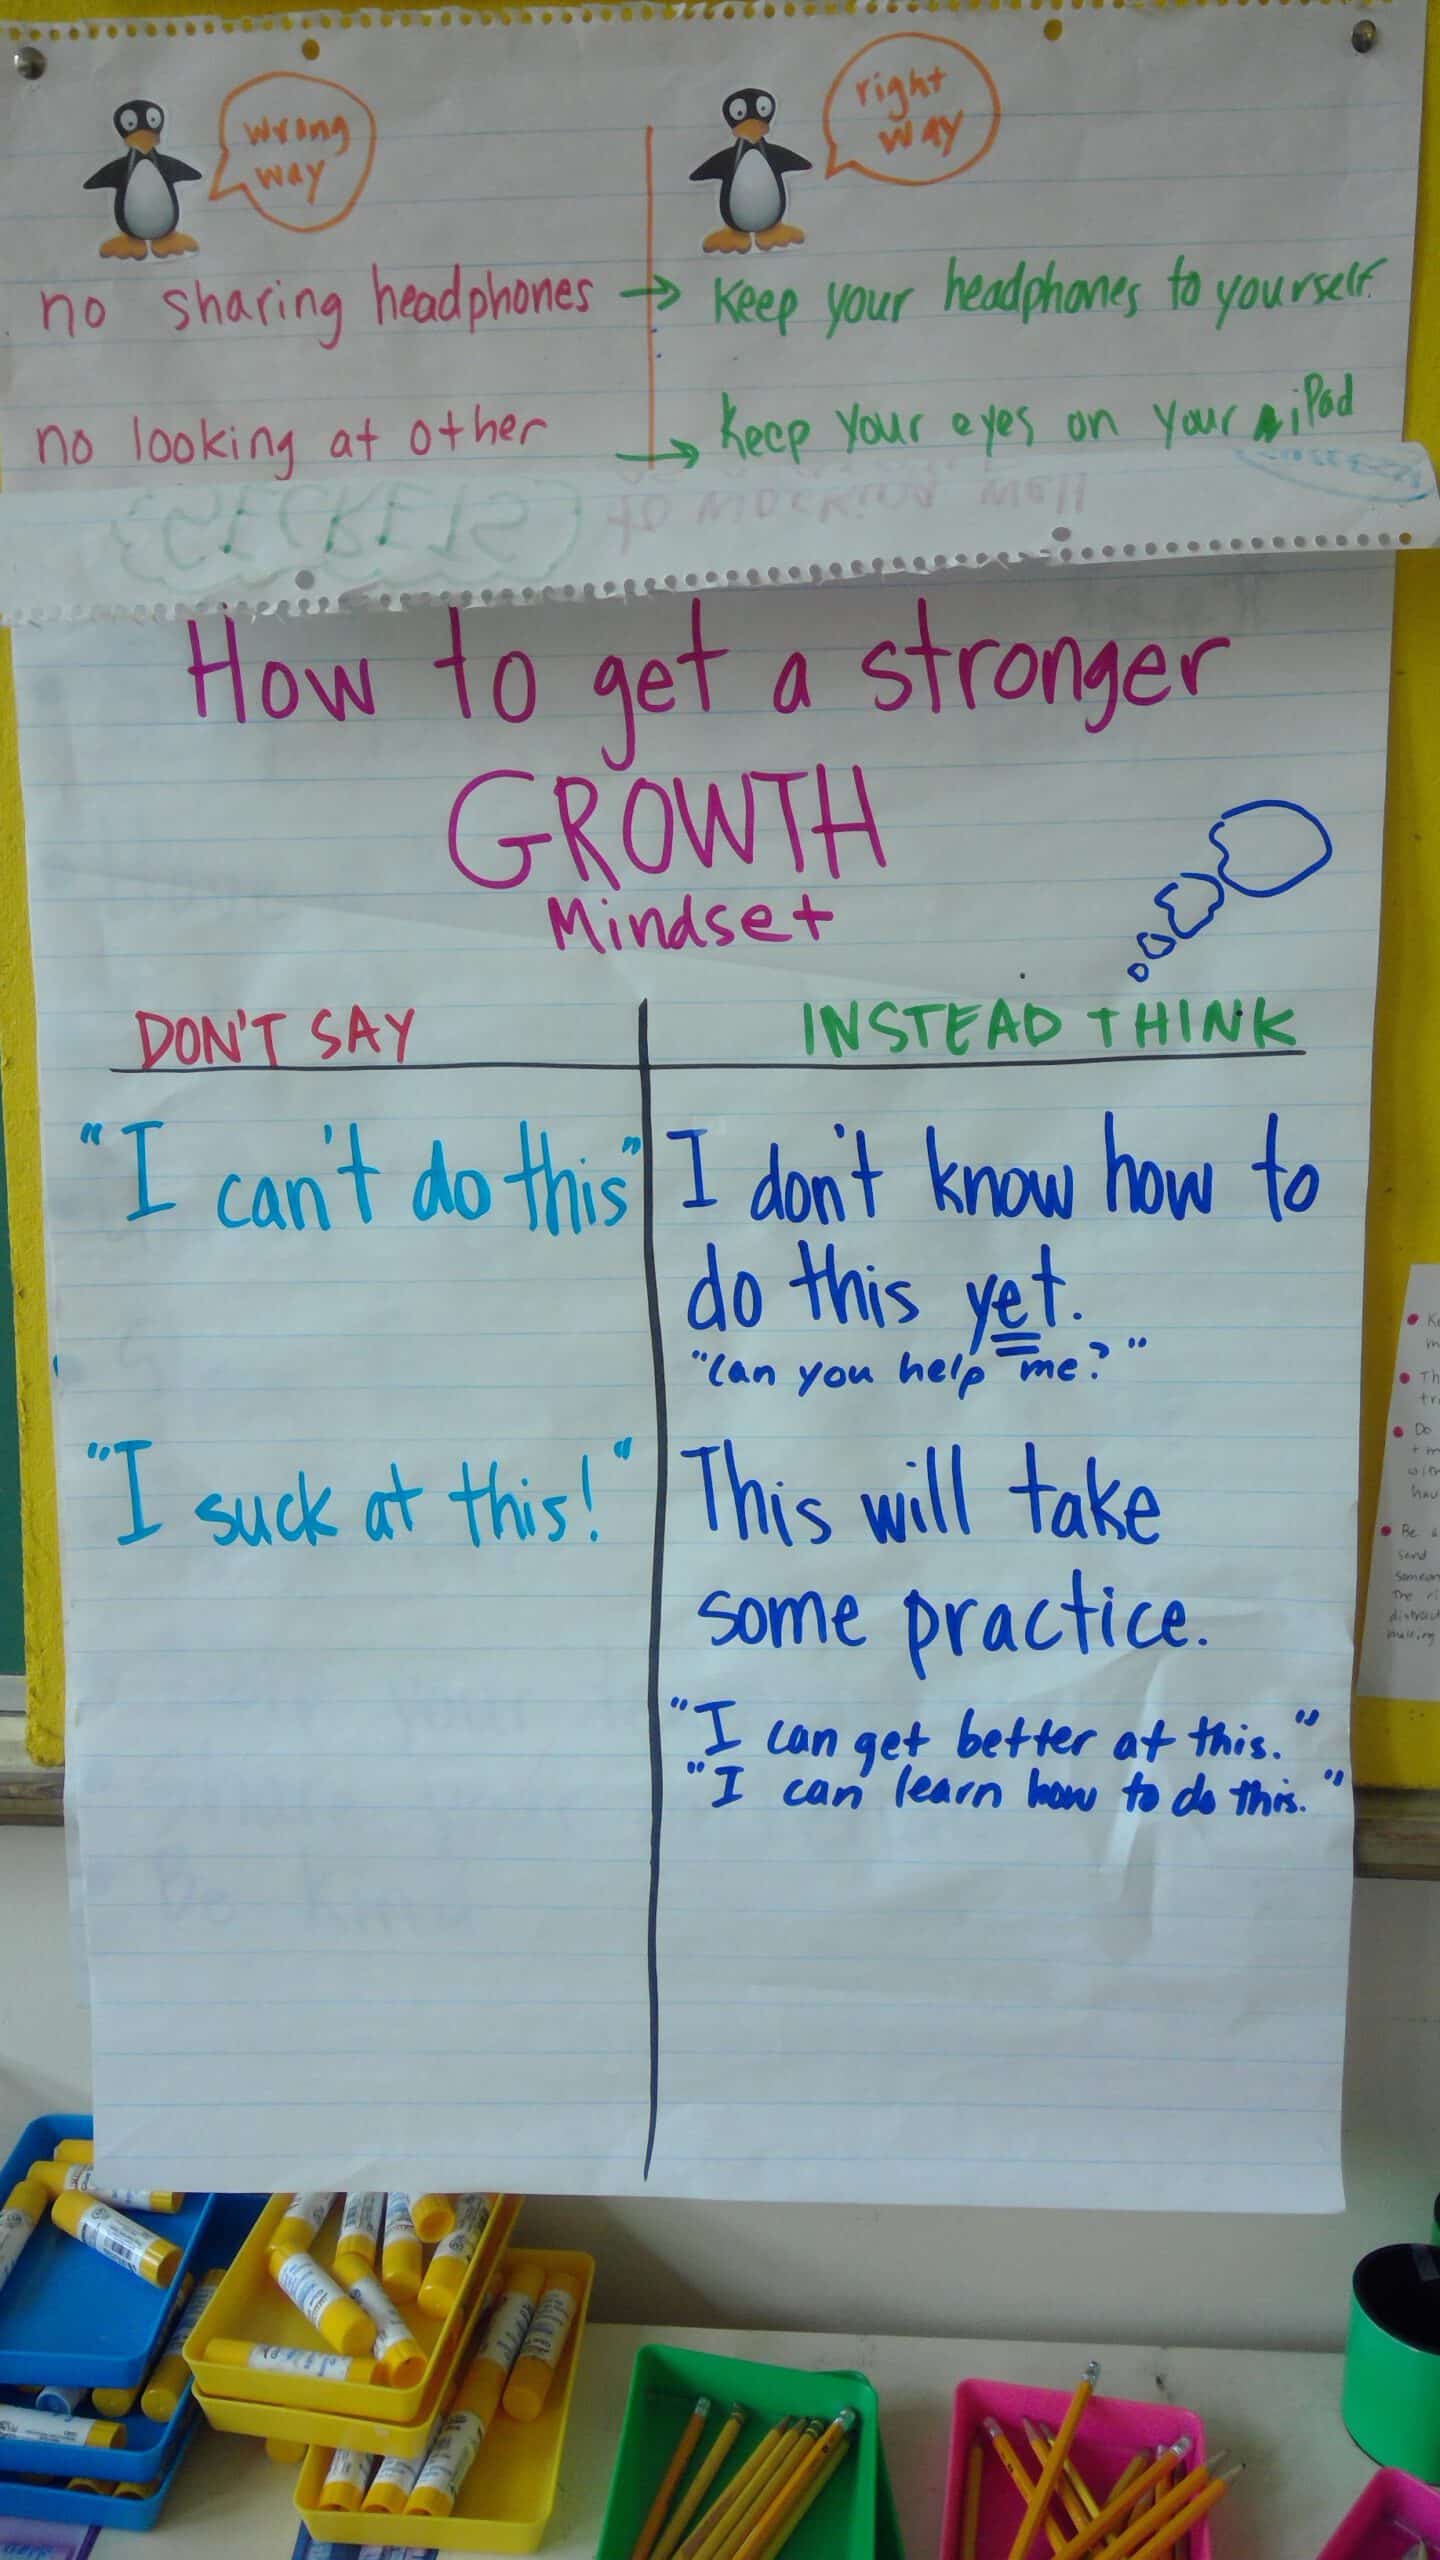 wrong
way
right
way
no sharing headphones → Keep your headphones to yourself.
no looking at other → Keep your eyes on your iPad
SECRETS to working well
How to get a stronger
GROWTH
Mindset
DON'T SAY
INSTEAD THINK
"I can't do this"
I don't know how to
do this yet.
"Can you help me?"
"I suck at this!"
This will take
some practice.
"I can get better at this."
"I can learn how to do this."